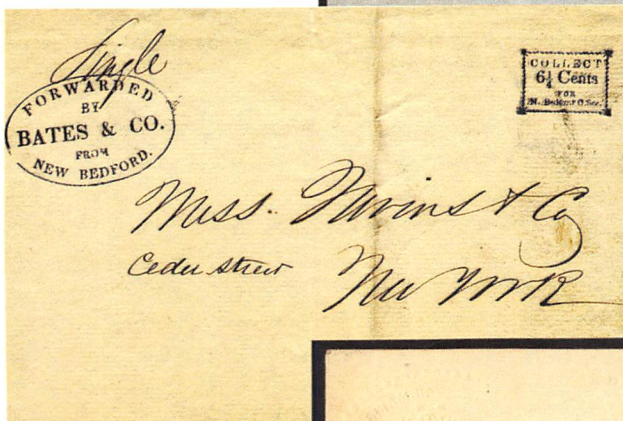 Single
FORWARDED
BY
BATES & CO.
FROM
NEW BEDFORD.
COLLECT
6¼ Cents
FOR
N. Bedford Office.
Mess. Nevins & Co
Cedar Street
New York